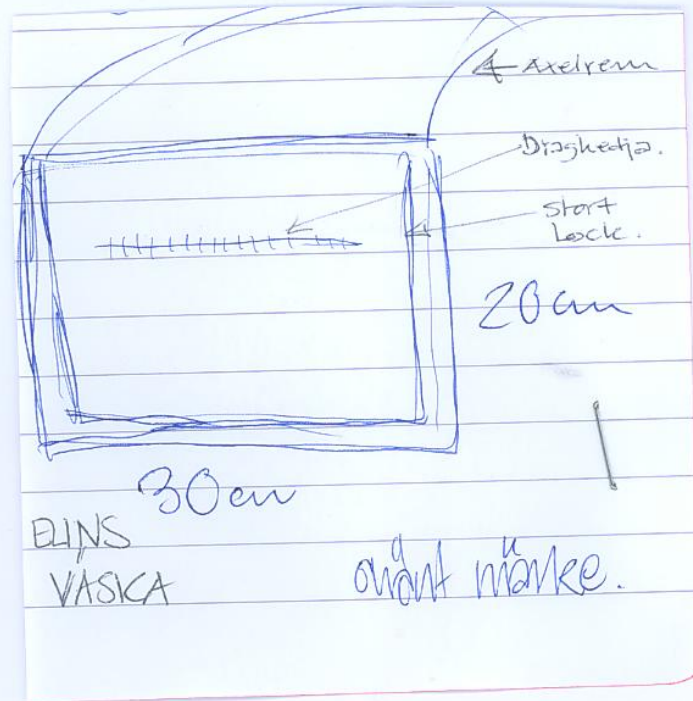 Axelrem
Dragkedja.
stort
Lock.
20 cm
30 cm
ELINS
VÄSKA
okänt märke.